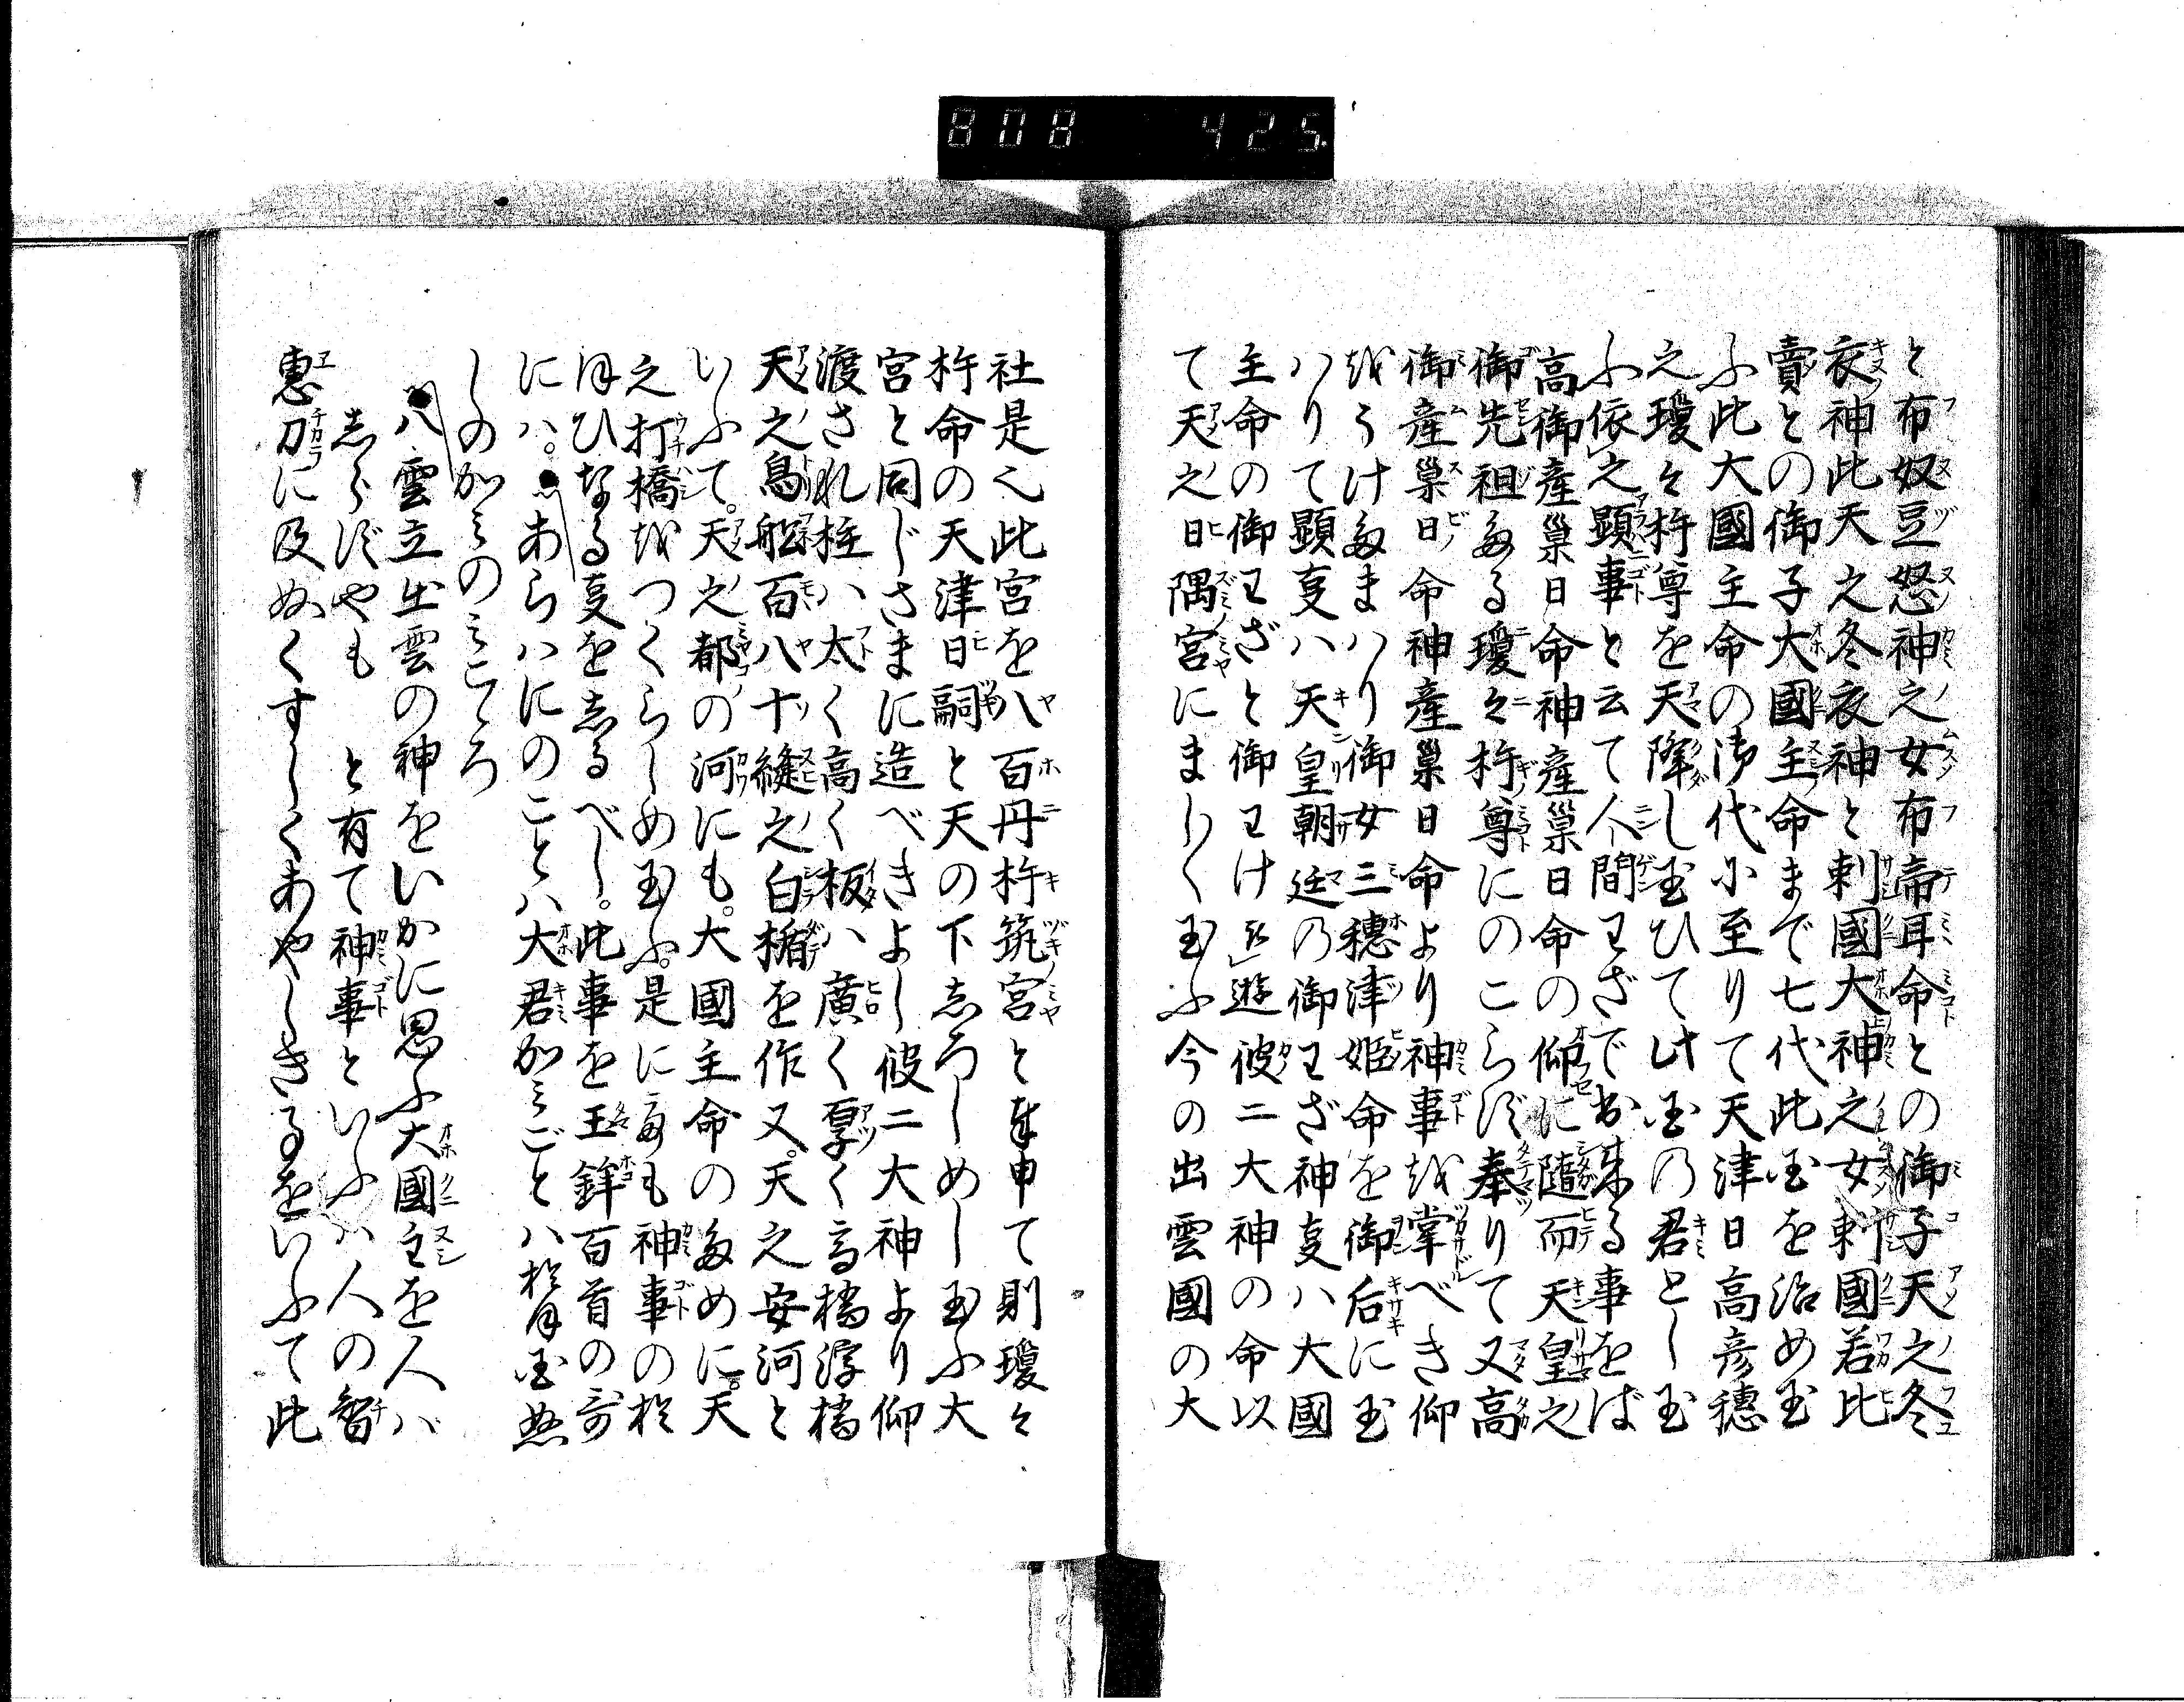 808 425.
と布奴豆怒神之女布帝耳命との御子天之冬
衣神此天之冬衣神と刺國大神之女刺國若比
賣との御子大國主命まで七代此国を治め玉
ふ此大國主命の御代に至りて天津日高彦穗
之瓊々杵尊を天降し玉ひて此国の君とし玉
ふ依之顕事と云て人間わざで出来る事をば
高御産巣日命神産巣日命の仰に隨而天皇之
御先祖なる瓊々杵尊にのこらず奉りて又高
御産巣日命神産巣日命より神事を掌べき仰
をうけたまハり御女三穗津姫命を御后に玉
ハりて顕事ハ天皇朝廷の御わざ神事ハ大國
主命の御わざと御わけ遊彼二大神の命以
て天之日隅宮にましく玉ふ今の出雲國の大
社是也此宮を八百丹杵筑宮と申て則瓊々
杵命の天津日嗣と天の下しろしめし玉ふ大
宮と同じさまに造べきよし彼二大神より仰
渡され柱ハ太く高く板ハ廣く厚く高橋浮橋
天之鳥船百八十縫之白楯を作又天之安河と
いふて。天之都の河にも。大國主命のために。天
之打橋をつくらしめ玉ふ。是にても神事の於
ほひなる事をしるべし。此事を玉鉾百首の哥
にハ。あらハにのことハ大君かミごとハ於保国ぬ
しのかミのミこゝろ
八雲立出雲の神をいかに思ふ大國主を人ハ
しらずやも　と有て神事といふハ人の智
恵力に及ぬくすしくあやしきるをいふて此